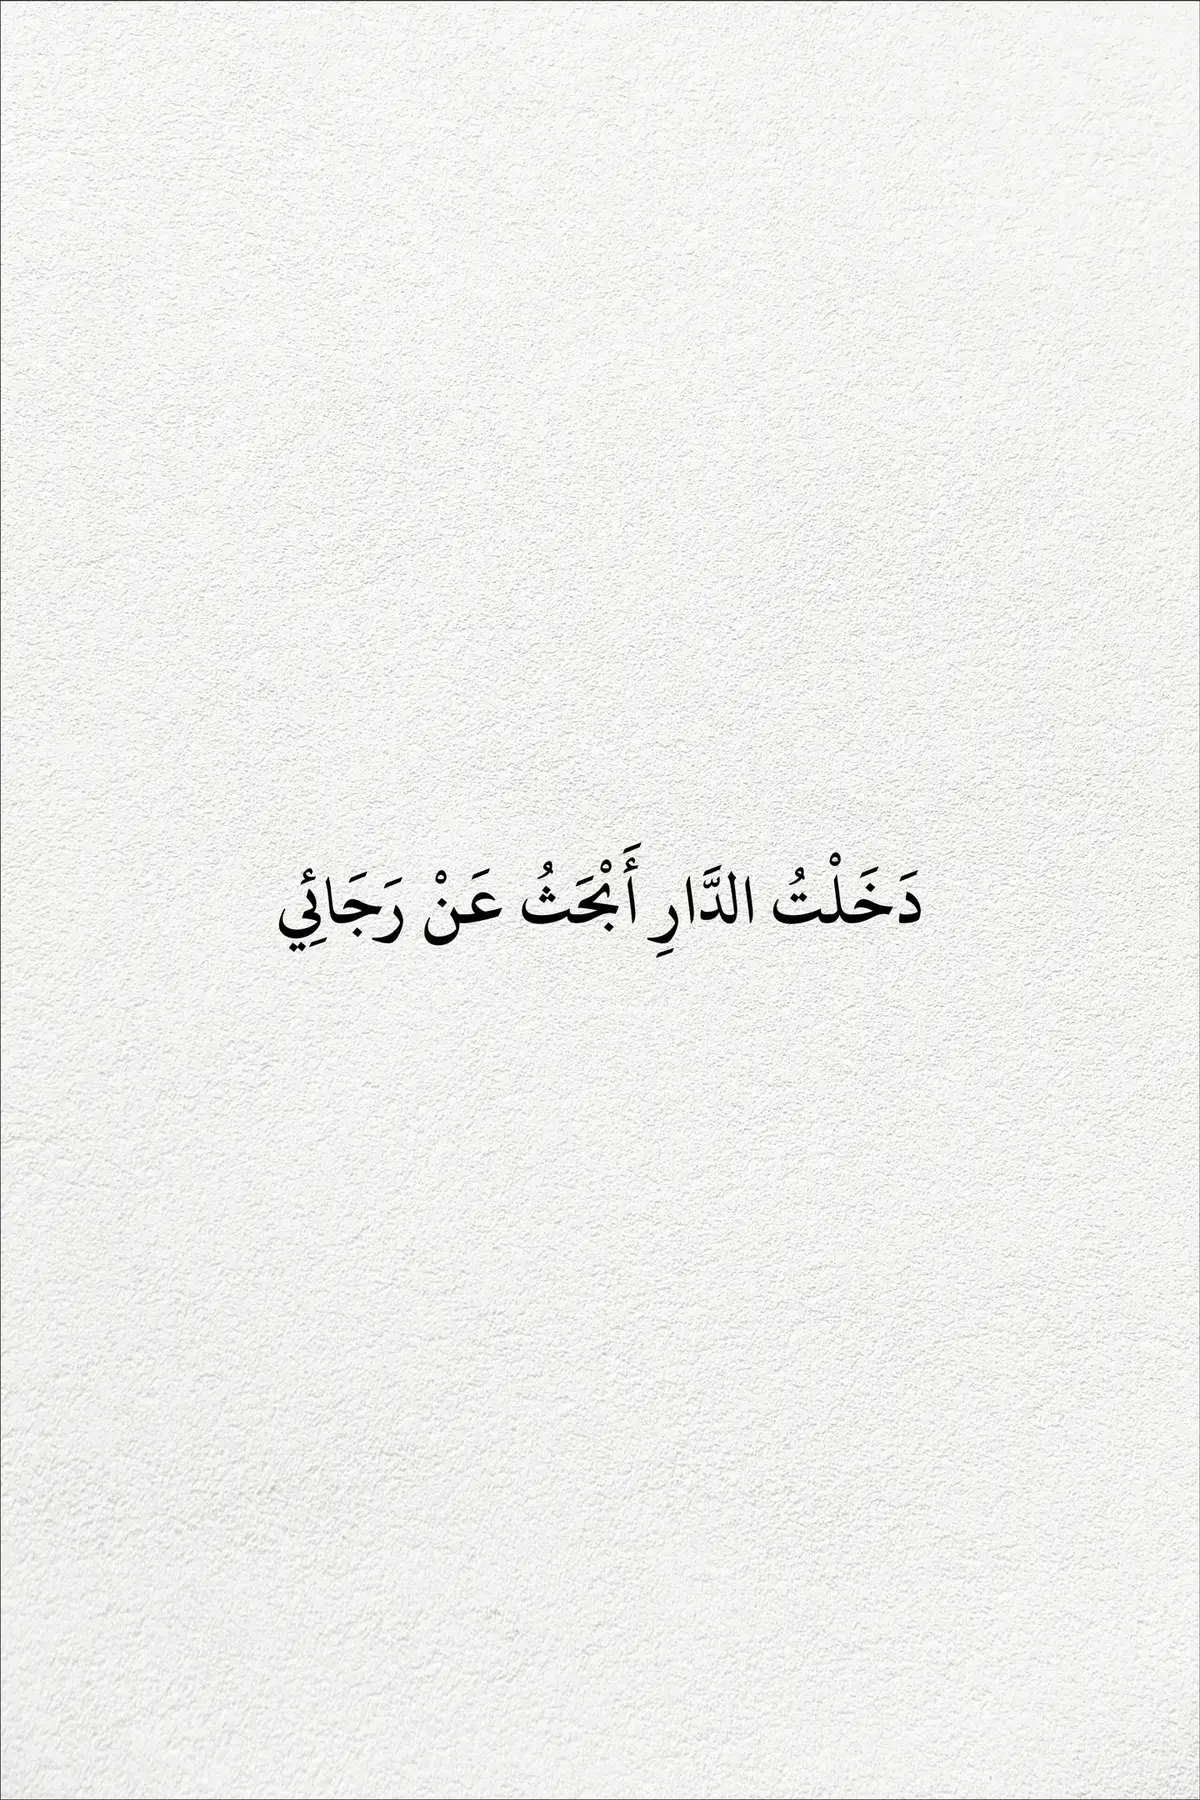 دَخَلْتُ الدَّارِ أَبْحَثُ عَنْ رَجَائِي